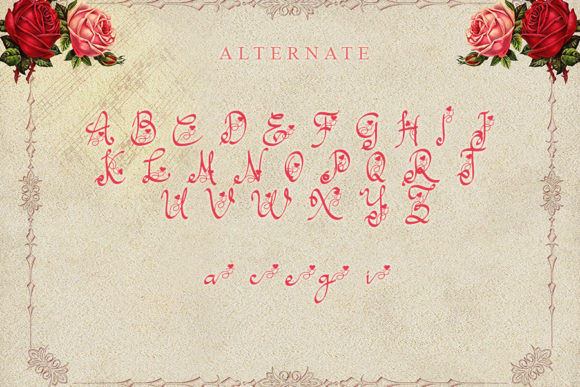 ALTERNATE
A B C D E F G H I J
K L M N O P Q R T
U V W X Y Z
a c e g i